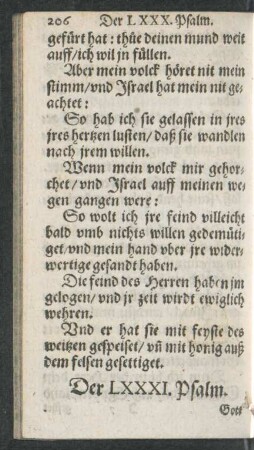 206 Der LXXX. Psalm.
gefürt hat: thüe deinen mund weit
auff/ich wil jn füllen.
Aber mein volck höret nit mein
stimm/vnd Israel hat mein nit ge-
achtet:
So hab ich sie gelassen in jres
jres hertzen lusten/daß sie wandlen
nach jrem willen.
Wenn mein volck mir gehor-
chet/vnd Israel auff meinen we-
gen gangen were:
So wolt ich jre feind villeicht
bald vmb nichts willen gedemüti-
get/vnd mein hand vber jre wider-
wertige gesandt haben.
Die feind des Herren haben jm
gelogen/vnd jr zeit wirdt ewiglich
wehren.
Vnd er hat sie mit feyste des
weitzen gespeiset/vñ mit honig auß
dem felsen gesettiget.
Der LXXXI. Psalm.
Gott